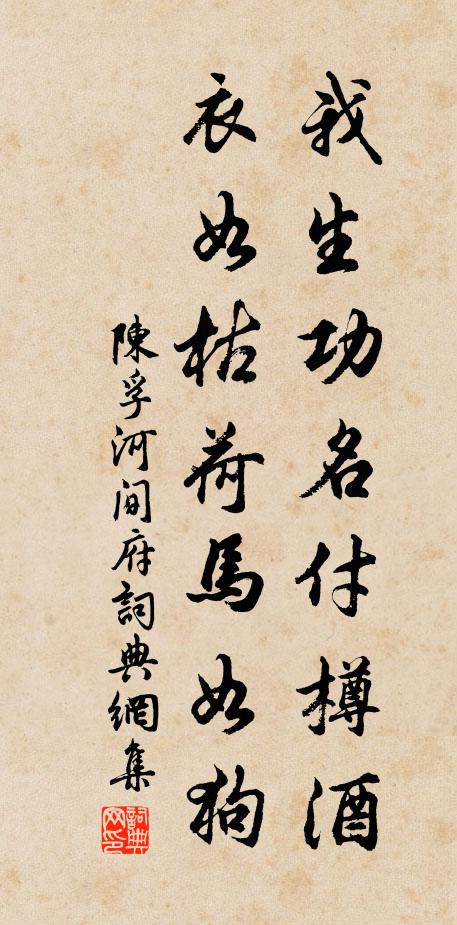 我生功名付樽酒
衣如枯荷馬如狗
陳孚河間府詞典網集
詞典網印